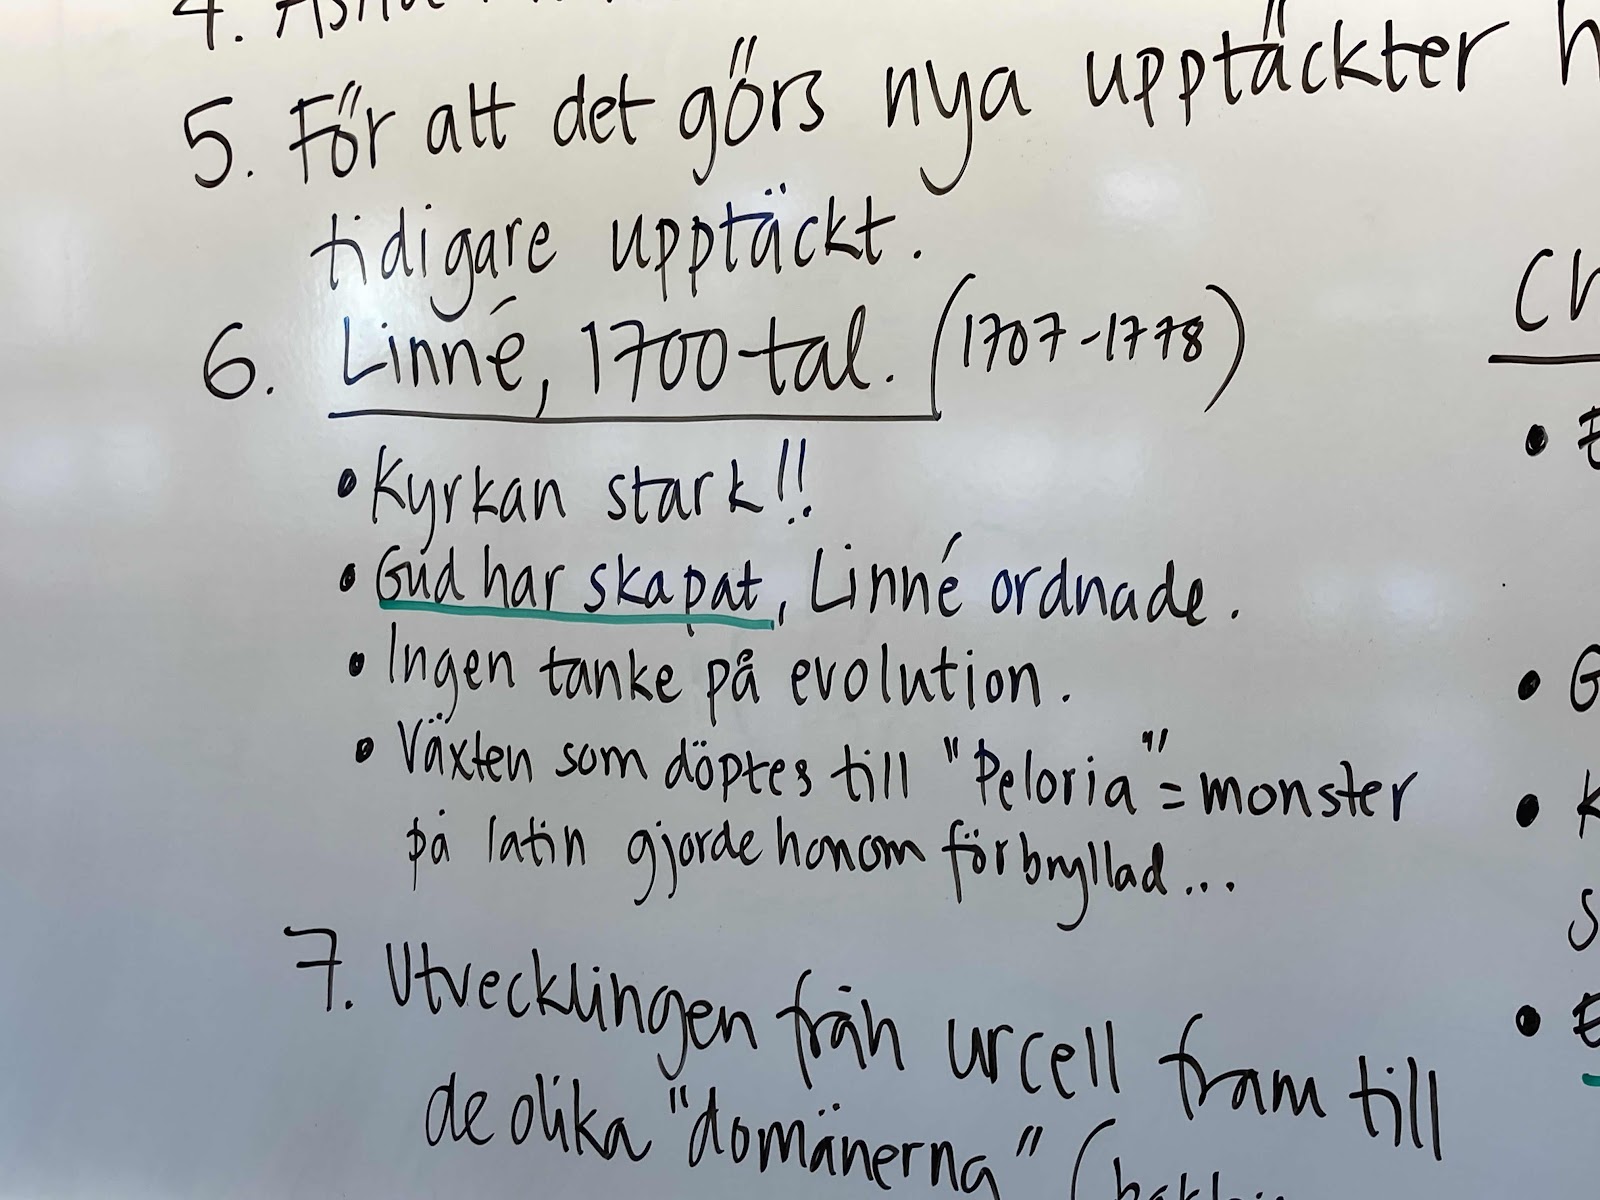 4.
5. För att det görs nya upptäckter
tidigare upptäckt.
6. Linné, 1700 tal. (1707-1778)
• Kyrkan stark!!
• Gud har skapat, Linné ordnade.
• Ingen tanke på evolution.
• Växten som döptes till "Peloria" = monster
på latin gjorde honom förbryllad...
7. Utvecklingen från urcell fram till
de olika "domänerna" (